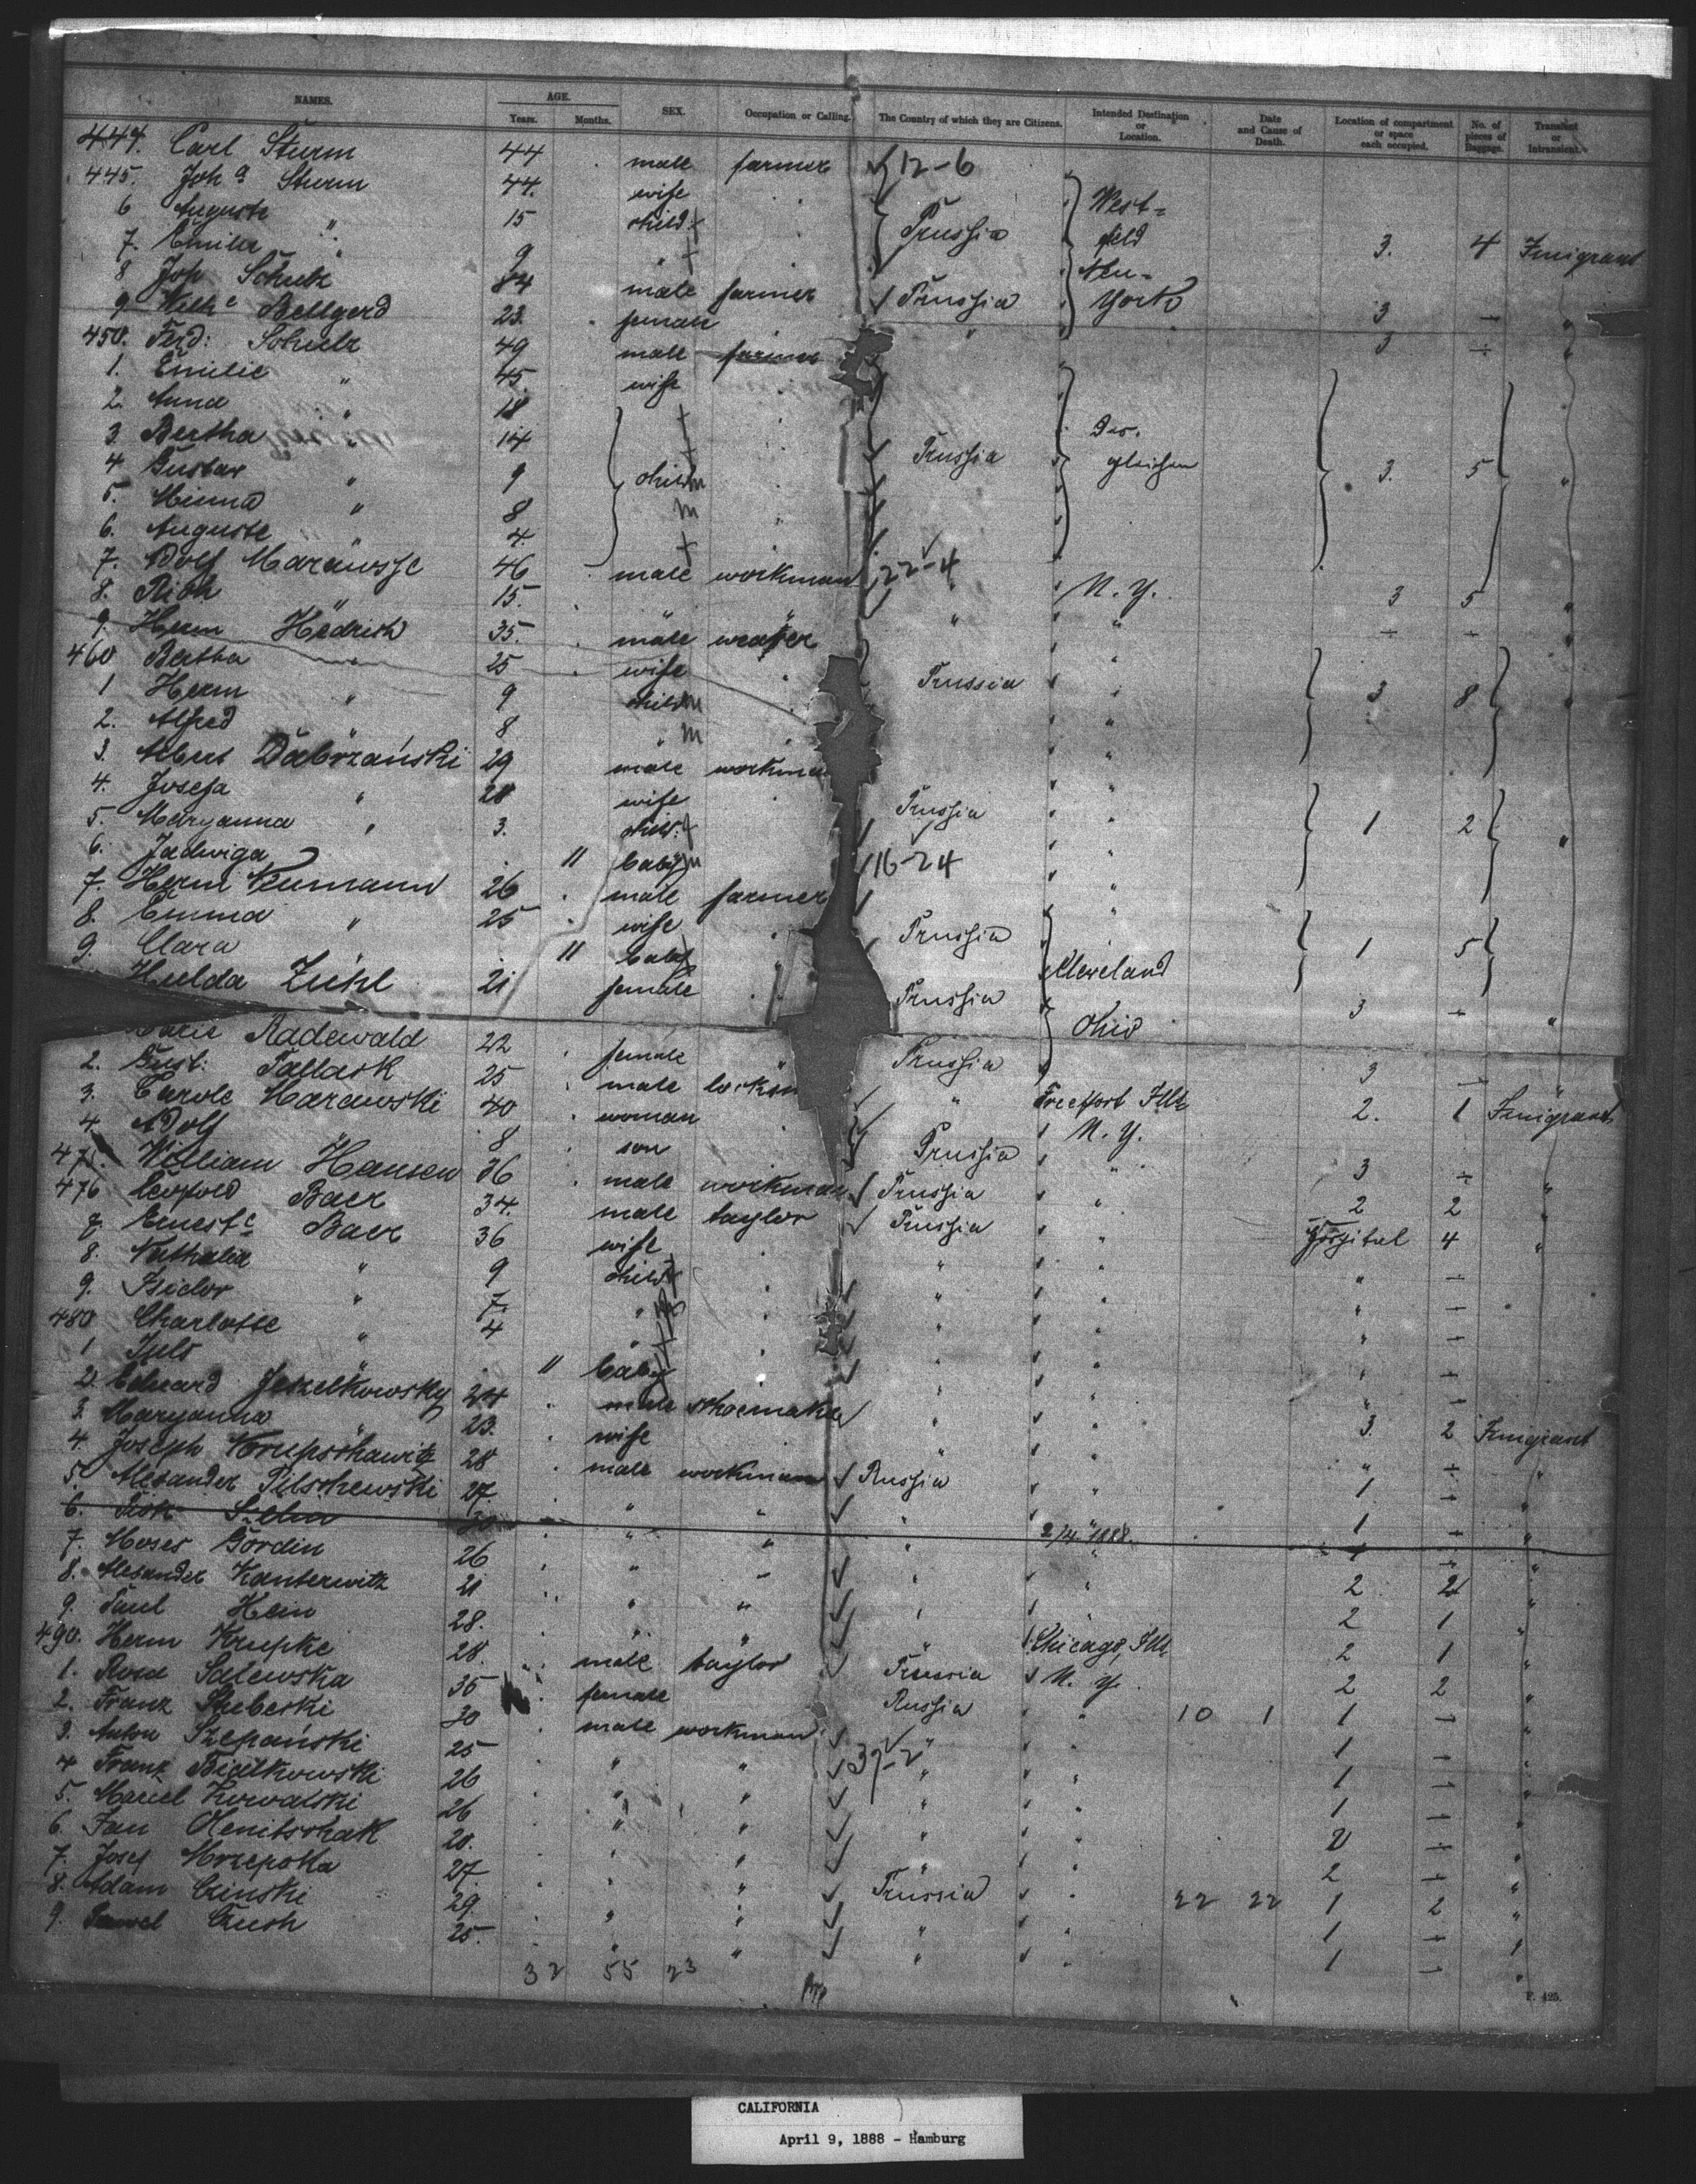 NAMES. AGE. Years. Months. SEX. Occupation or Calling. The Country of which they are Citizens. Intended Destination or Location. Date and Cause of Death. Location of compartment or space each occupied. No. of pieces of Baggage. Transient or Intransient.
444. Carl Sturm 44 male farmer 12-6
445. Joh a Sturm 44. wife West=
6 Auguste " 15 child Prussia feld
7. Emilie " 9 " Neu= 3. 4 Imigrant
8 Joh Schulz 84 male farmer Prussia York 3 -
9. Wilh e Bellgard 23. female " 3 - "
450. Ferd: Schulz 49 male farmer
1. Emilie " 45 wife
2. Anna 18
3. Bertha " 14 Prussia Des-
4 Gustav " 9 child m gleichen 3. 5 "
5. Minna " 8 m
6. Auguste 4.
7. Adolf 46 male workman 22-4 N. Y. 3 5 "
8. Rich " 15. " " " " - - "
9. Herm Hedrich 35. male weaver "
460 Bertha " 25 wife Prussia " 3 8 "
1 Herm " 9 child m
2. Alfred " 8 " m "
3. Albert Dabrzański 29 male workman "
4. Josefa " 28 wife Prussia "
5. Maryanna " 3. child " 1 2 "
6. Jadwiga 11 baby m 16-24 "
7. Herm Neumann 26 male farmer "
8. Emma " 25 wife Prussia
9. Clara 11 baby Cleveland 1 5
Hulda Zühl 21 female Prussia Ohio 3 - "
Radewald 22 female Prussia 3 - "
2. Gust: Tallask 25 male " Freeport Ills 2. 1 Imigrant
3. Carole Marawski 40 woman N. Y.
4. Adolf " 8 son Prussia " 3 - "
475. William Hansen 36 male workman Prussia " 2 2 "
476 Leopold Baer 34. male taylor Prussia " Hospital 4 "
7. Ernest e Baer 36 wife " " " -
8. Nathalia " 9 child " " " -
9. Isidor " 7. " " " " -
480 Charlotte " 4 " " " " -
1 Juls 11 baby " " " -
2. Eduard Jeszelkowsky 24 male shoemaker " " 3. 2 Imigrant
3. Maryanna " 23. wife " " - "
4. Joseph Krupschawitz 28 male workman Russia " 1 - "
5. Alexander Pilschewski 27. " " " " 1 - "
6. 30 " " " 2/4 1888. 1 - "
7. Moses Gordin 26 " " " " 2 2 "
8. Alexander Kanterwitz 21 " " " 2 1 "
9. Paul Hein 28. " " " Chicago, Ills 2 1 "
490. Herm Krupke 28. male taylor Prussia N. Y. 2 2 "
1. Rosa Salewska 35 female Russia " 10 1 1 - "
2. Franz 30 male workman " " 1 - "
3. Anton Szepański 25 " " 37-2 " " 1 - "
4 Franz Bialkowski 26 " " " " 1 - "
5. Marcel Kowalski 26 " " " " 2 - "
6. Jan Olenitschak 20. " " " " 2 - "
7. Josef 27. " " Prussia " 22 22 1 2 "
8. Adam Czinski 29. " " " " 1 - "
9. 25. " " " " 1 - "
32 55 23
F. 425.
CALIFORNIA
April 9, 1888 - Hamburg